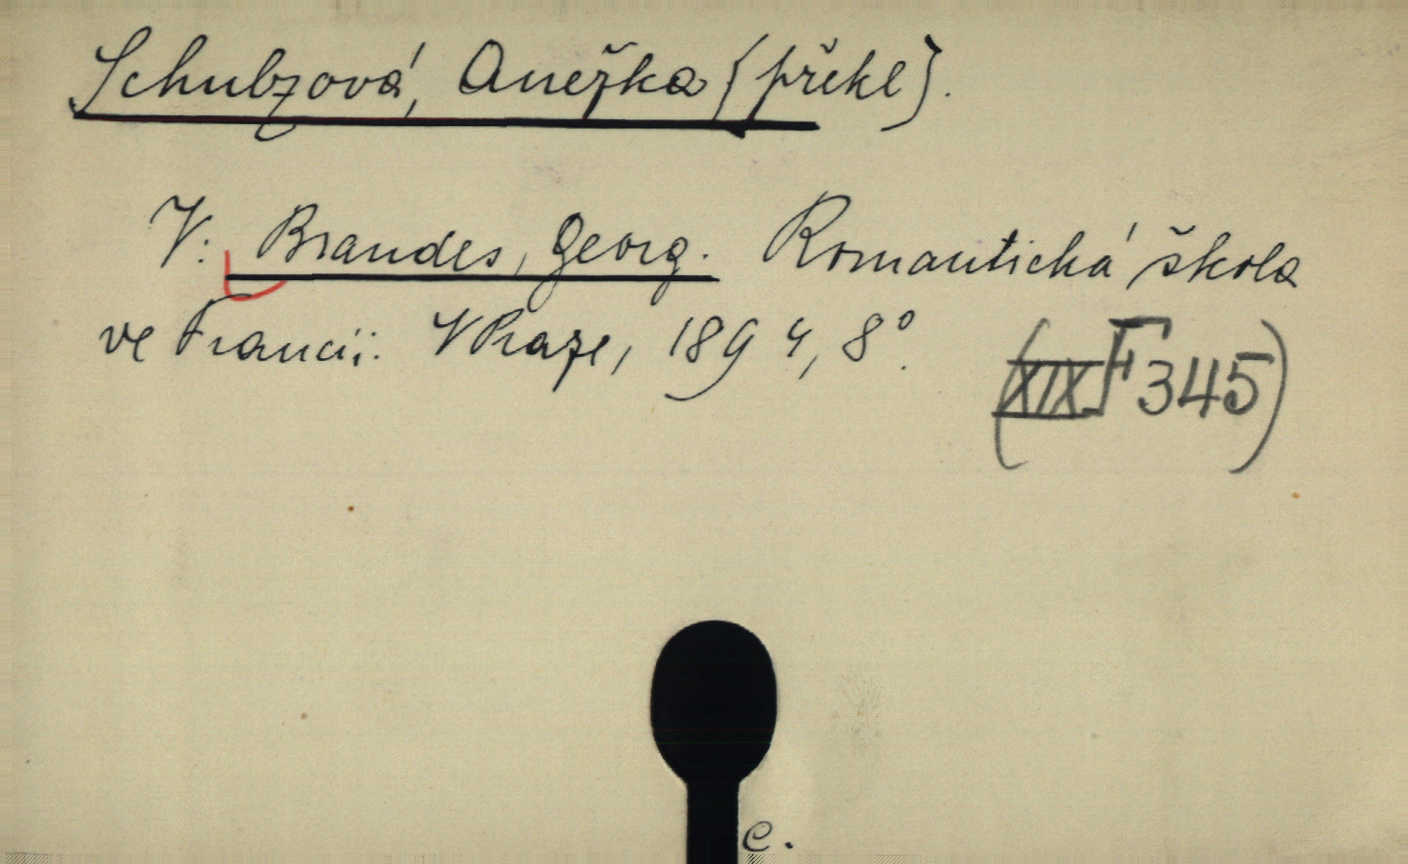 Schulzová, Anežka (překl).
V: Brandes, Georg. Romantická škola
ve Francii. V Praze, 1894, 8°.
(XIX F 345)
C.